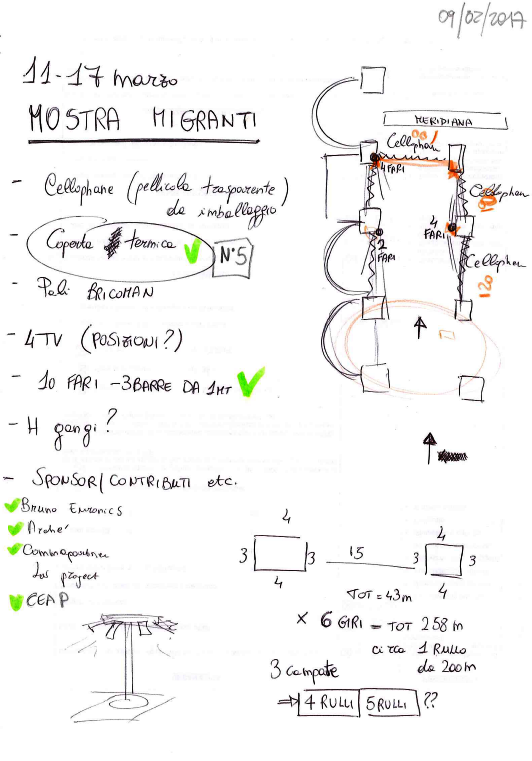 09/02/2017
11-17 marzo
MOSTRA MIGRANTI
- Cellophane (pellicola trasparente)
da imballaggio
- Coperta termica N°5
- Pali BRICOMAN
- 4 TV (POSIZIONI?)
- 10 FARI - 3 BARRE DA 1MT
- H gangi?
- SPONSOR/CONTRIBUTI etc.
Bruno Euronics
Archè
project
CEAP
MERIDIANA
Cellophan
4 FARI
Cellophan
4
FARI
2
FARI
Cellophan
120
4
3 3 15 3 3
4
4
4
TOT = 43 m
× 6 GIRI = TOT 258 m
circa 1 RULLO
da 200m
3 campate
⇒ 4 RULLI 5 RULLI ??